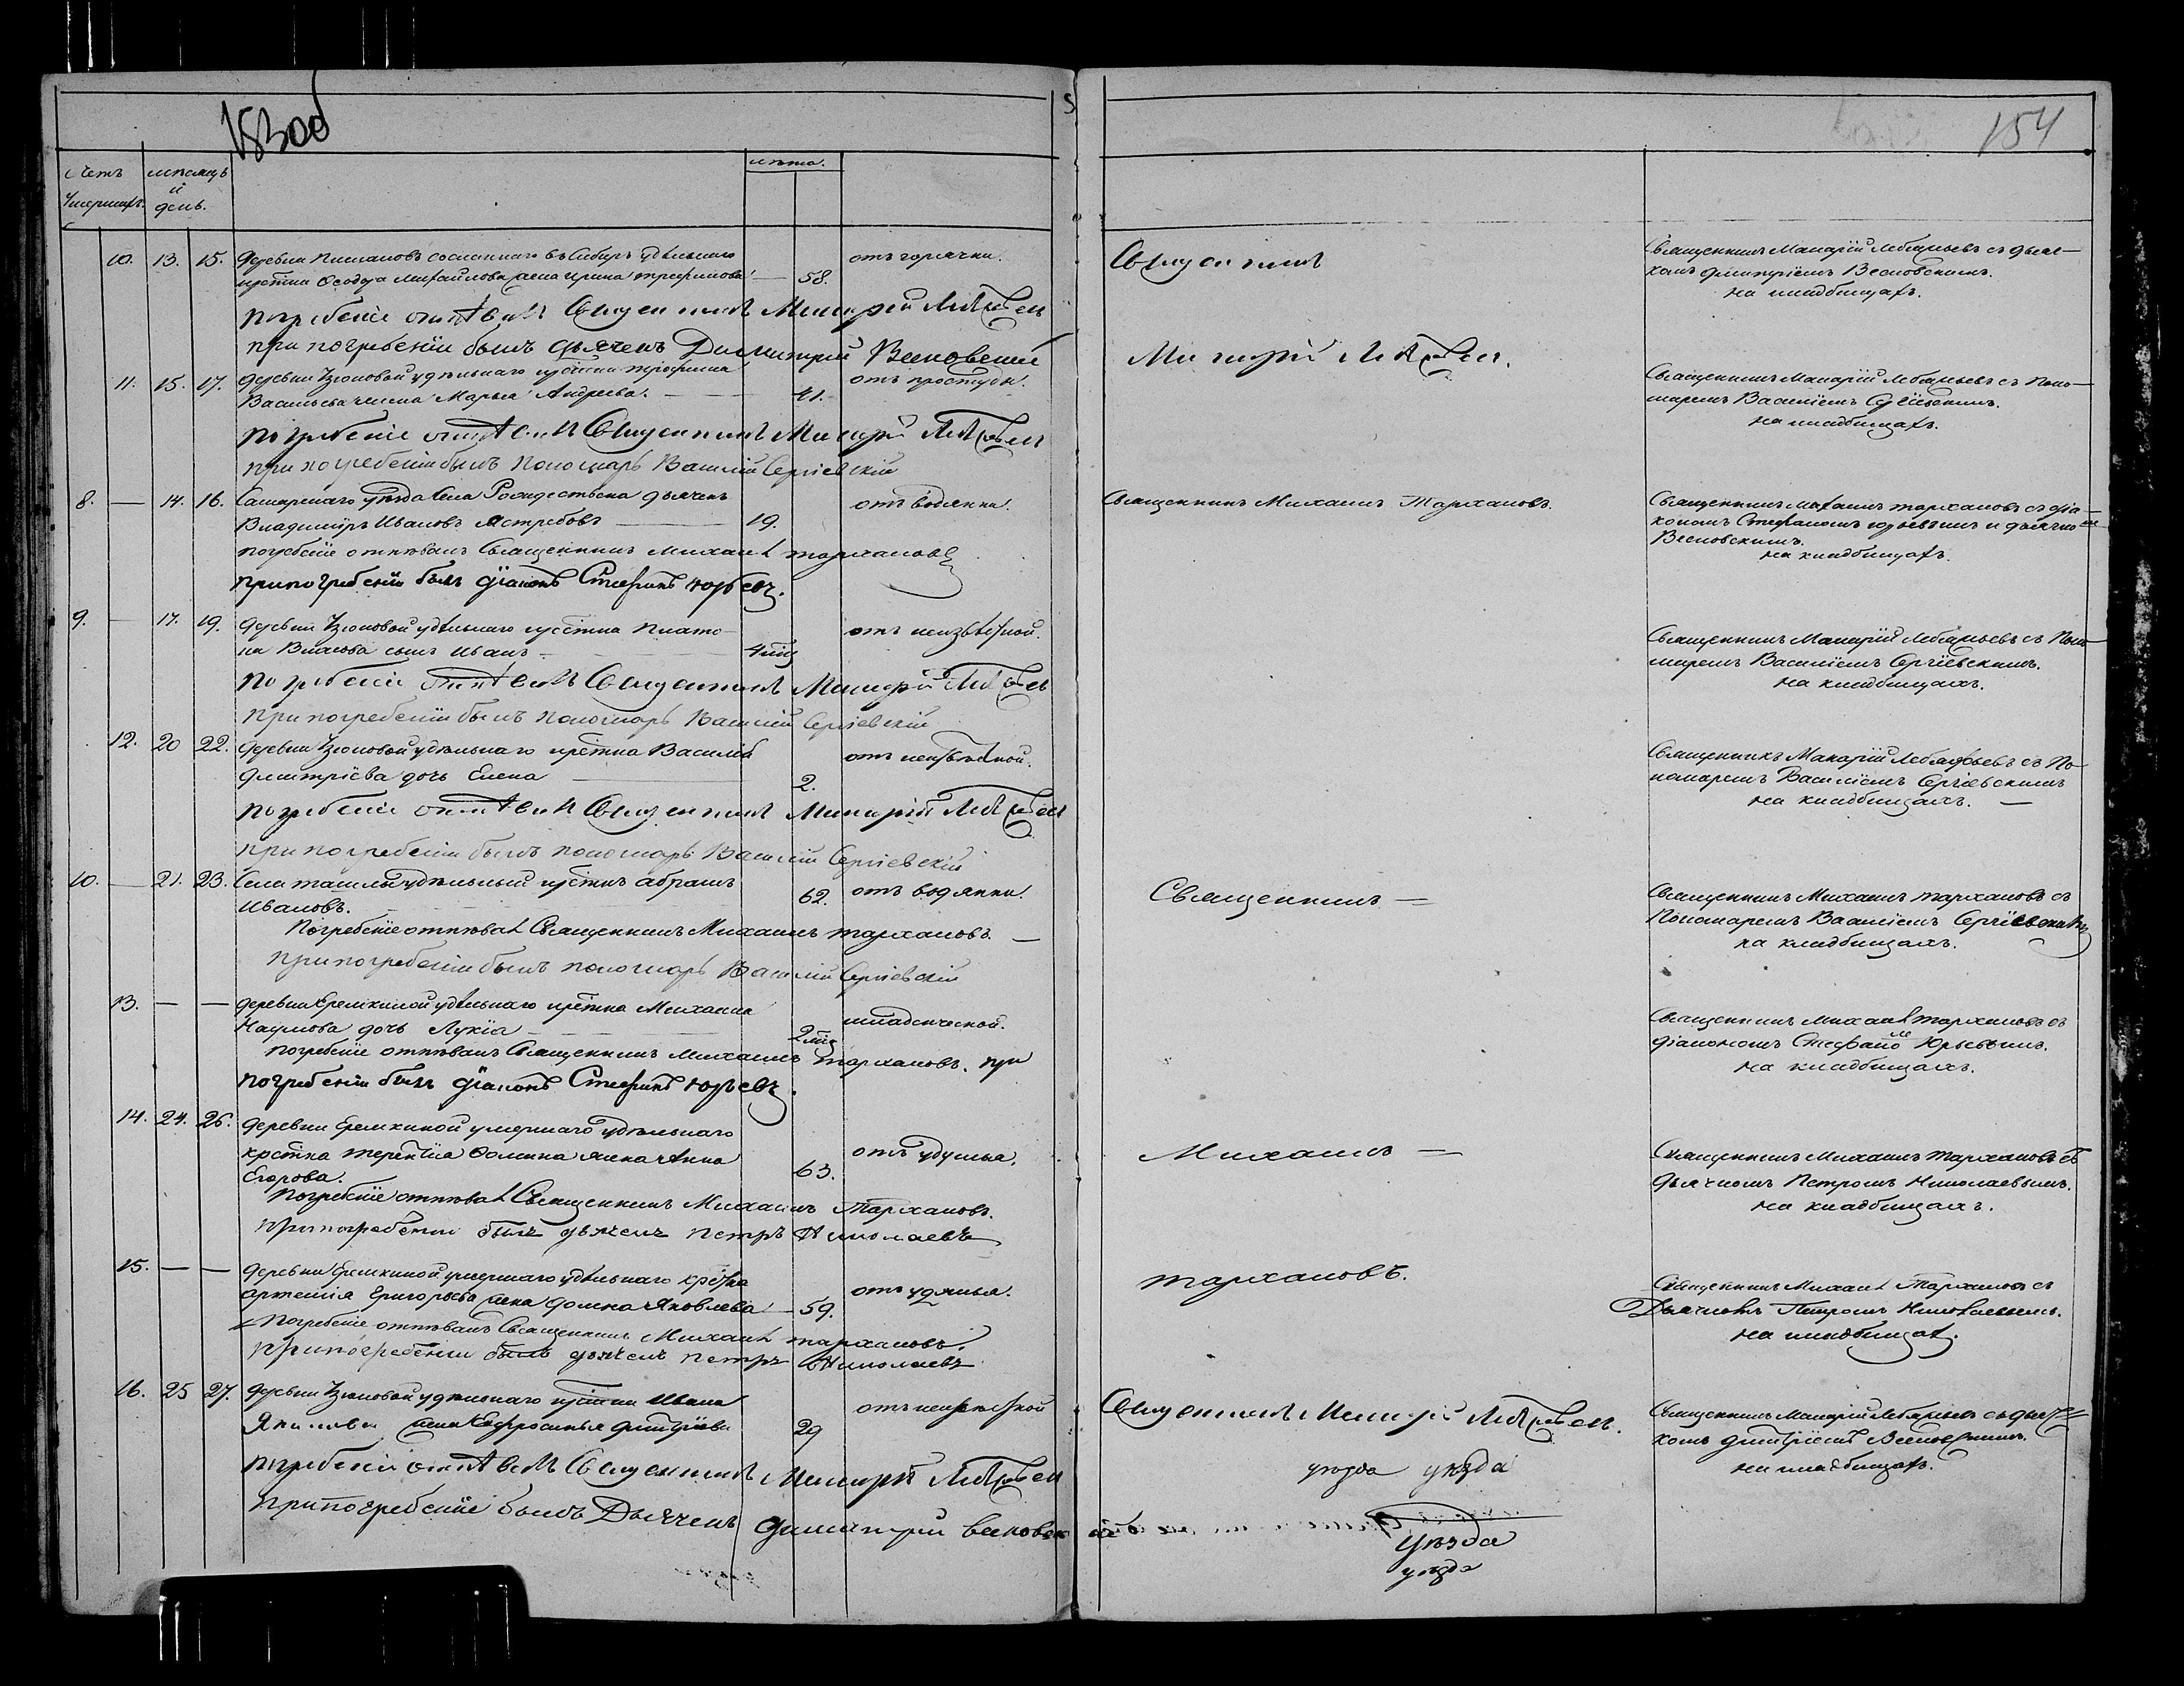 153об
154
Счетъ умершихъ.
мѣсяцъ и день.
лѣта.
10. 13. 15. Деревни сосланнаго въ Сибирь удѣльнаго
крестьна Ѳеодора Михайлова жена Ирина Трофимова — 58. отъ горячки.
погребеніе отпѣвалъ Священникъ Макарій Лебедевъ
при погребеніи былъ дьячекъ Димитрій
Священникъ
Макарій
Священникъ Макарій съ дьяч-
комъ Димитріемъ
на кладбищахъ.
11. 15. 17. Деревни Узюковой удѣльнаго крестьна Трофима
Васильева жена Марья Андреева. — 41. отъ простуды.
погребеніе отпѣвалъ Священникъ Макарій
при погребеніи былъ пономарь Василій Сергіевскій
Священникъ Макарій съ поно-
маремъ Василіемъ Сергіевскимъ.
на кладбищахъ.
8. — 14. 16. Самарскаго уѣзда села Рождествена дьячекъ
Владиміръ Ивановъ Ястребовъ — 19. отъ водянки.
погребеніе отпѣвалъ Священникъ Михаилъ Тархановъ
при погребеніи былъ діаконъ Стефанъ Юрьевъ.
Священникъ Михаилъ Тархановъ.
Священникъ Михаилъ Тархановъ съ діа-
кономъ Стефаномъ Юрьевымъ и дьячкомъ
на кладбищахъ.
9. — 17. 19. Деревни Узюковой удѣльнаго крестьна Плато-
на Власова сынъ Иванъ. — 4 мѣс. отъ неизвѣстной.
погребеніе отпѣвалъ Священникъ Макарій
при погребеніи былъ пономарь Василій Сергіевскій
Священникъ Макарій съ поно-
маремъ Василіемъ Сергіевскимъ.
на кладбищахъ.
12. 20 22. Деревни Узюковой удѣльнаго крестьна Василія
Дмитріева дочь Елена — 2. отъ неизвѣстной.
погребеніе отпѣвалъ Священникъ Макарій
при погребеніи былъ пономарь Василій Сергіевскій
Священникъ Макарій съ по-
номаремъ Василіемъ Сергіевскимъ
на кладбищахъ. —
10. — 21. 23. Села Ташлы удѣльный крестьнъ Абрамъ
Ивановъ. — 62. отъ водянки.
Погребеніе отпѣвалъ Священникъ Михаилъ Тархановъ. —
при погребеніи былъ пономарь Василій Сергіевскій
Священникъ —
Священникъ Михаилъ Тархановъ съ
Пономаремъ Василіемъ Сергіевскимъ
на кладбищахъ.
13. — — деревни Еремкиной удѣльнаго крестьна Михаила
Наумова дочь Лукія — 2 мѣс. младенческой.
погребеніе отпѣвалъ Священникъ Михаилъ Тархановъ. при
погребеніи былъ діаконъ Стефанъ Юрьевъ.
Священникъ Михаилъ Тархановъ съ
діакономъ Стефаномъ Юрьевымъ.
на кладбищахъ.
14. 24. 26. Деревни Еремкиной умершаго удѣльнаго
крестьна Терентія Ѳомина жена Анна
Егорова. 63. отъ удушья.
Погребеніе отпѣвалъ Священникъ Михаилъ Тархановъ.
при погребеніи былъ дьячекъ Петръ Николаевъ
Михаилъ —
Священникъ Михаилъ Тархановъ съ
дьячкомъ Петромъ Николаевымъ.
на кладбищахъ.
15. — — Деревни Еремкиной умершаго удѣльнаго крестьна
Артемія Григорьева жена Домна Яковлева — 59. отъ удушья.
Погребеніе отпѣвалъ Священникъ Михаилъ Тархановъ.
при погребеніи былъ дьячекъ Петръ Николаевъ
Тархановъ.
Священникъ Михаилъ Тархановъ съ
Дьячкомъ Петромъ Николаевымъ.
на кладбищахъ.
16. 25 27. Деревни Узюковой удѣльнаго крестьна Ивана
жена Ефросинья Дмитріева 29 отъ неизвѣстной
погребеніе отпѣвалъ Священникъ Макарій
при погребеніе былъ Дьячекъ Димитрій
Священникъ Макарій
уѣзда уѣзда
Уѣзда
уѣзда
Священникъ Макарій съ дьяч-
комъ Димитріемъ
на кладбищахъ.